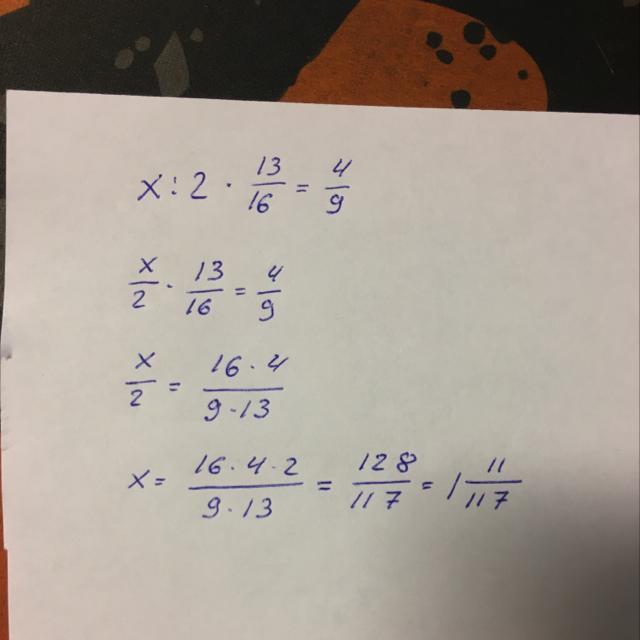 x : 2 · 13/16 = 4/9
x/2 · 13/16 = 4/9
x/2 = 16 · 4 / 9 · 13
x = 16 · 4 · 2 / 9 · 13 = 128/117 = 1 11/117